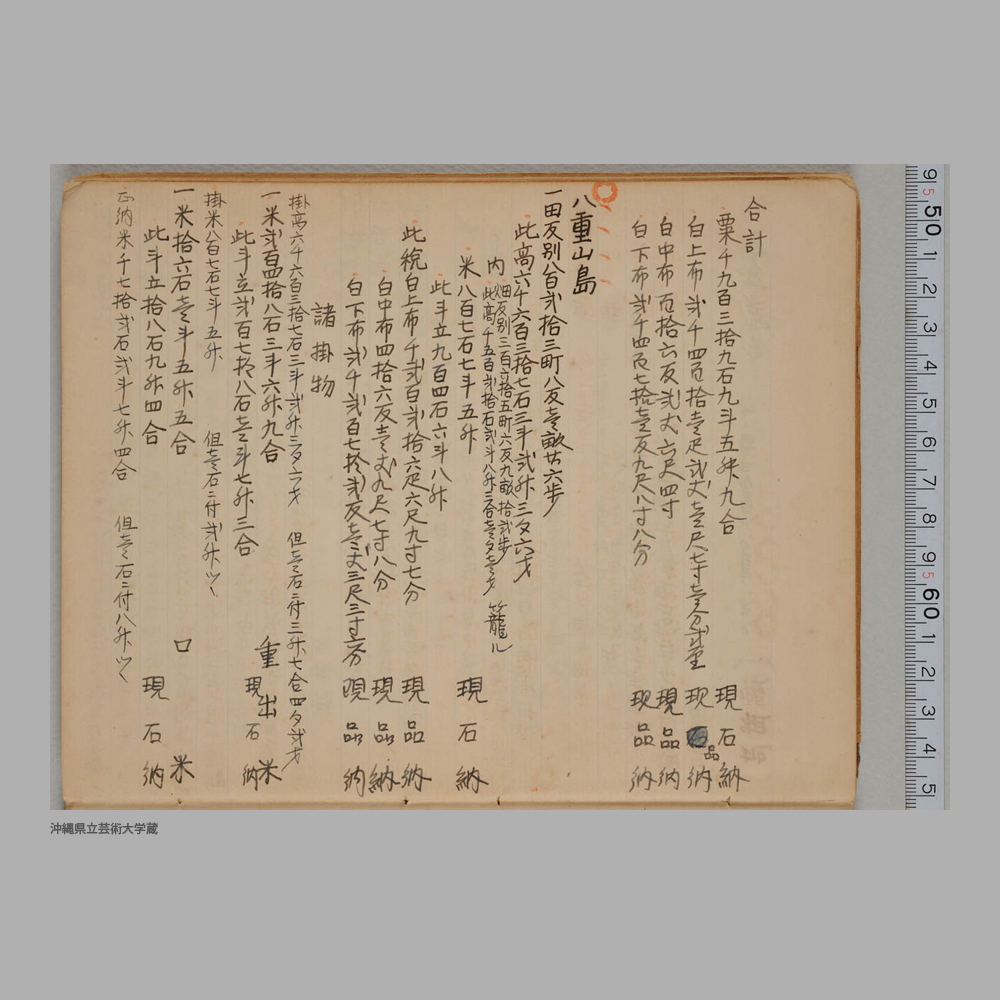 合計
粟千九百三拾九石九斗五舛九合 現石納
白上布弐千四百拾壱疋弐丈壱尺七寸壱分弐厘 現品納
白中布百拾六反弐丈六尺四寸 現品納
白下布弐千四百七拾壱反九尺八寸八分 現品納
八重山島
一田反別八百弐拾三町八反壱畝廿六歩
此高六千六百三拾七石三斗弐舛三夕六才
内 畑反別三百六拾五町六反九畝拾弐歩
此高千五百弐拾石弐斗八舛三合壱夕壱才 籠ル
米八百七石七斗五舛 現石納
此斗立九百四石六斗八舛
此税白上布千弐百弐拾六疋六尺九寸七分 現品納
白中布四拾六反壱丈九尺七寸八分 現品納
白下布弐千弐百七拾弐反壱丈三尺三寸六分 現品納
諸掛物
掛高六千六百三拾七石三斗弐舛三夕六才 但壱石ニ付三舛七合四夕弐才
一米弐百四拾八石三斗六舛九合 重出米
此斗立弐百七拾八石壱斗七舛三合 現石納
掛米八百七石七斗五舛 但壱石ニ付弐舛ツヽ
一米拾六石壱斗五舛五合 口米
此斗立拾八石九舛四合 現石納
正納米千七拾弐石弐斗七舛四合 但壱石ニ付八舛ツヽ
9 5 50 1 2 3 4 5 6 7 8 9 5 60 1 2 3 4 5
沖縄県立芸術大学蔵